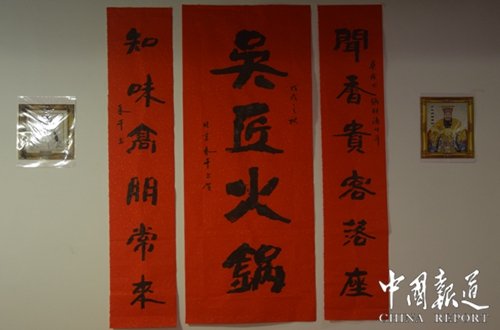 聞香貴客落座
吳匠火鍋
戊戌之秋
知味高朋常来
中國報道
CHINA REPORT